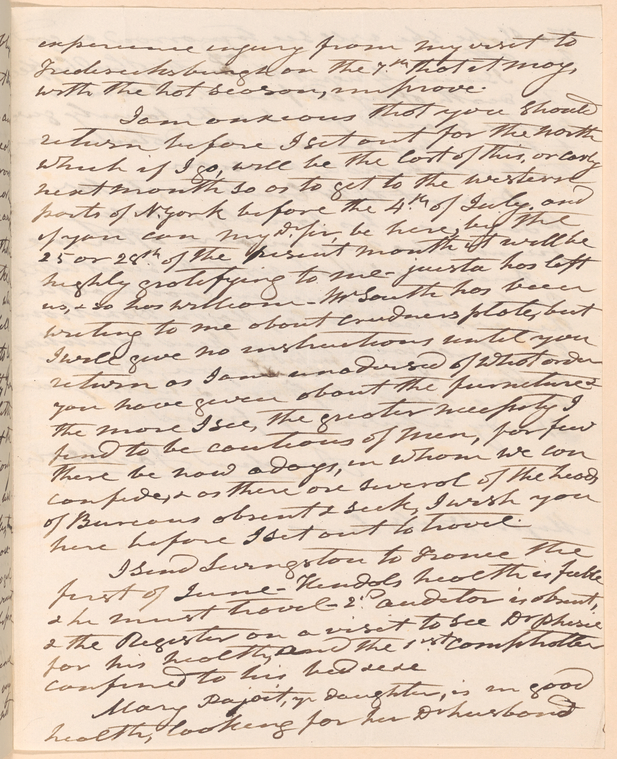 experience injury from my visit to
Fredericksburgh on the 7.th that it may,
with the hot season, improve.
I am anxious that you should
return before I set out for the North
which if I go, will be the last of this, or early
next month so as to get to the western
parts of N. York before the 4.th of July, and
if you can my Dr. Sir, be here, by the
25 or 28.th of the present month it will be
highly gratifying to me— has left
us, & so has William— Mr South has been
writing to me about plate, but
I will give no instructions until you
return as I am unadvised of what order
you have given about the furniture &
the more I see, the greater necessity I
find to be cautious of men, for few
there be now a days, in whom we can
confide, & as there are several of the heads
of Bureaus absent & sick, I wish you
here before I set out to travel.
I send Livingston to France the
first of June— Kendals health is feeble
& he must travel— 2.d auditor is absent,
& the Register on a visit to see Dr
for his health, and the 1rst comptroller
confined to his bed &c &c
Mary yr daughter, is in good
health, looking for her Dr husband